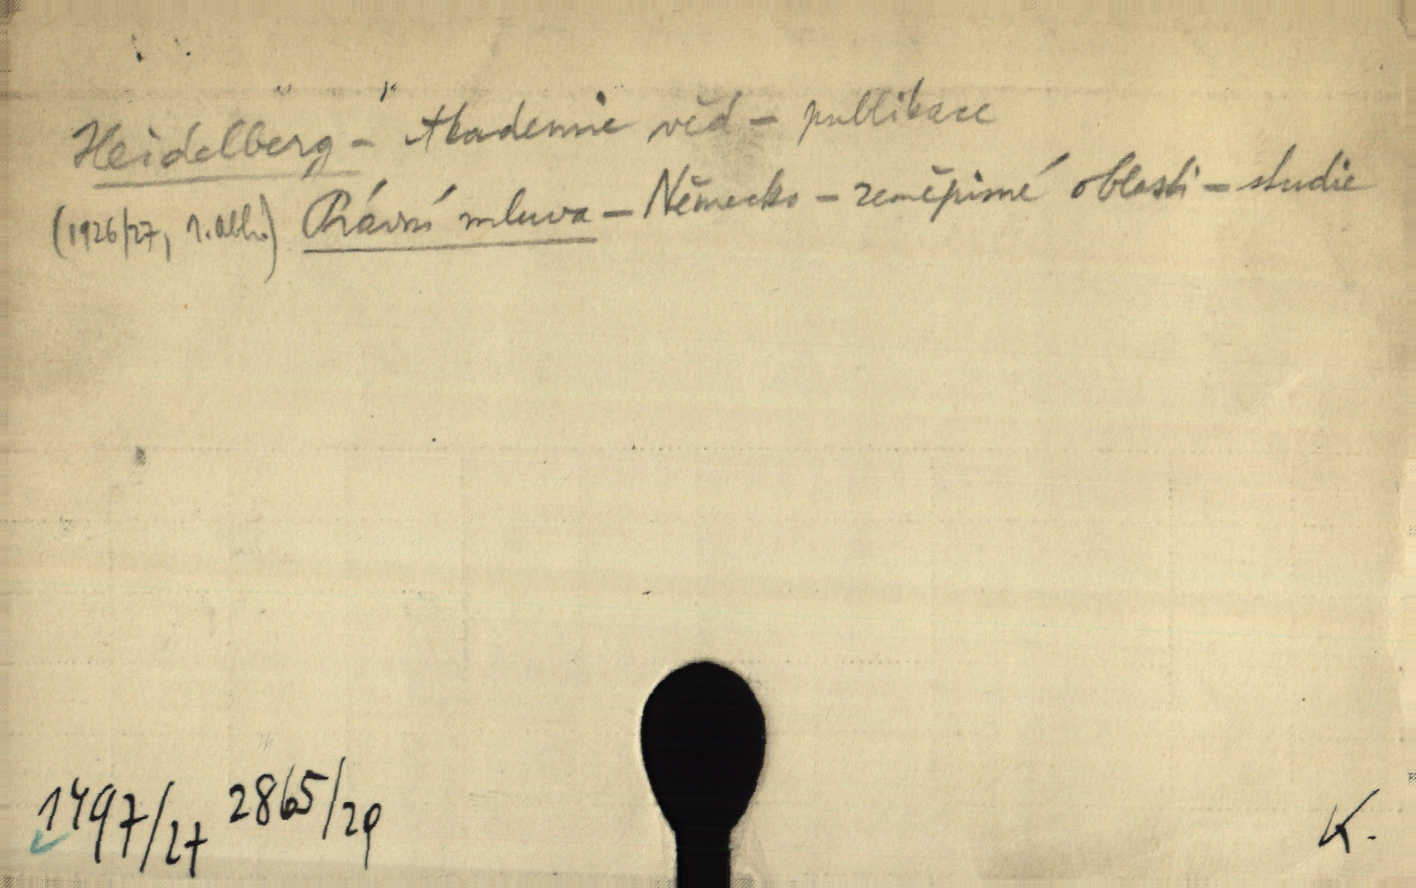 Heidelberg - Akademie věd - publikace
(1926/27, 1. Abh.) Právní mluva - Německo - zeměpisné oblasti - studie
1497/27 2865/29
K.